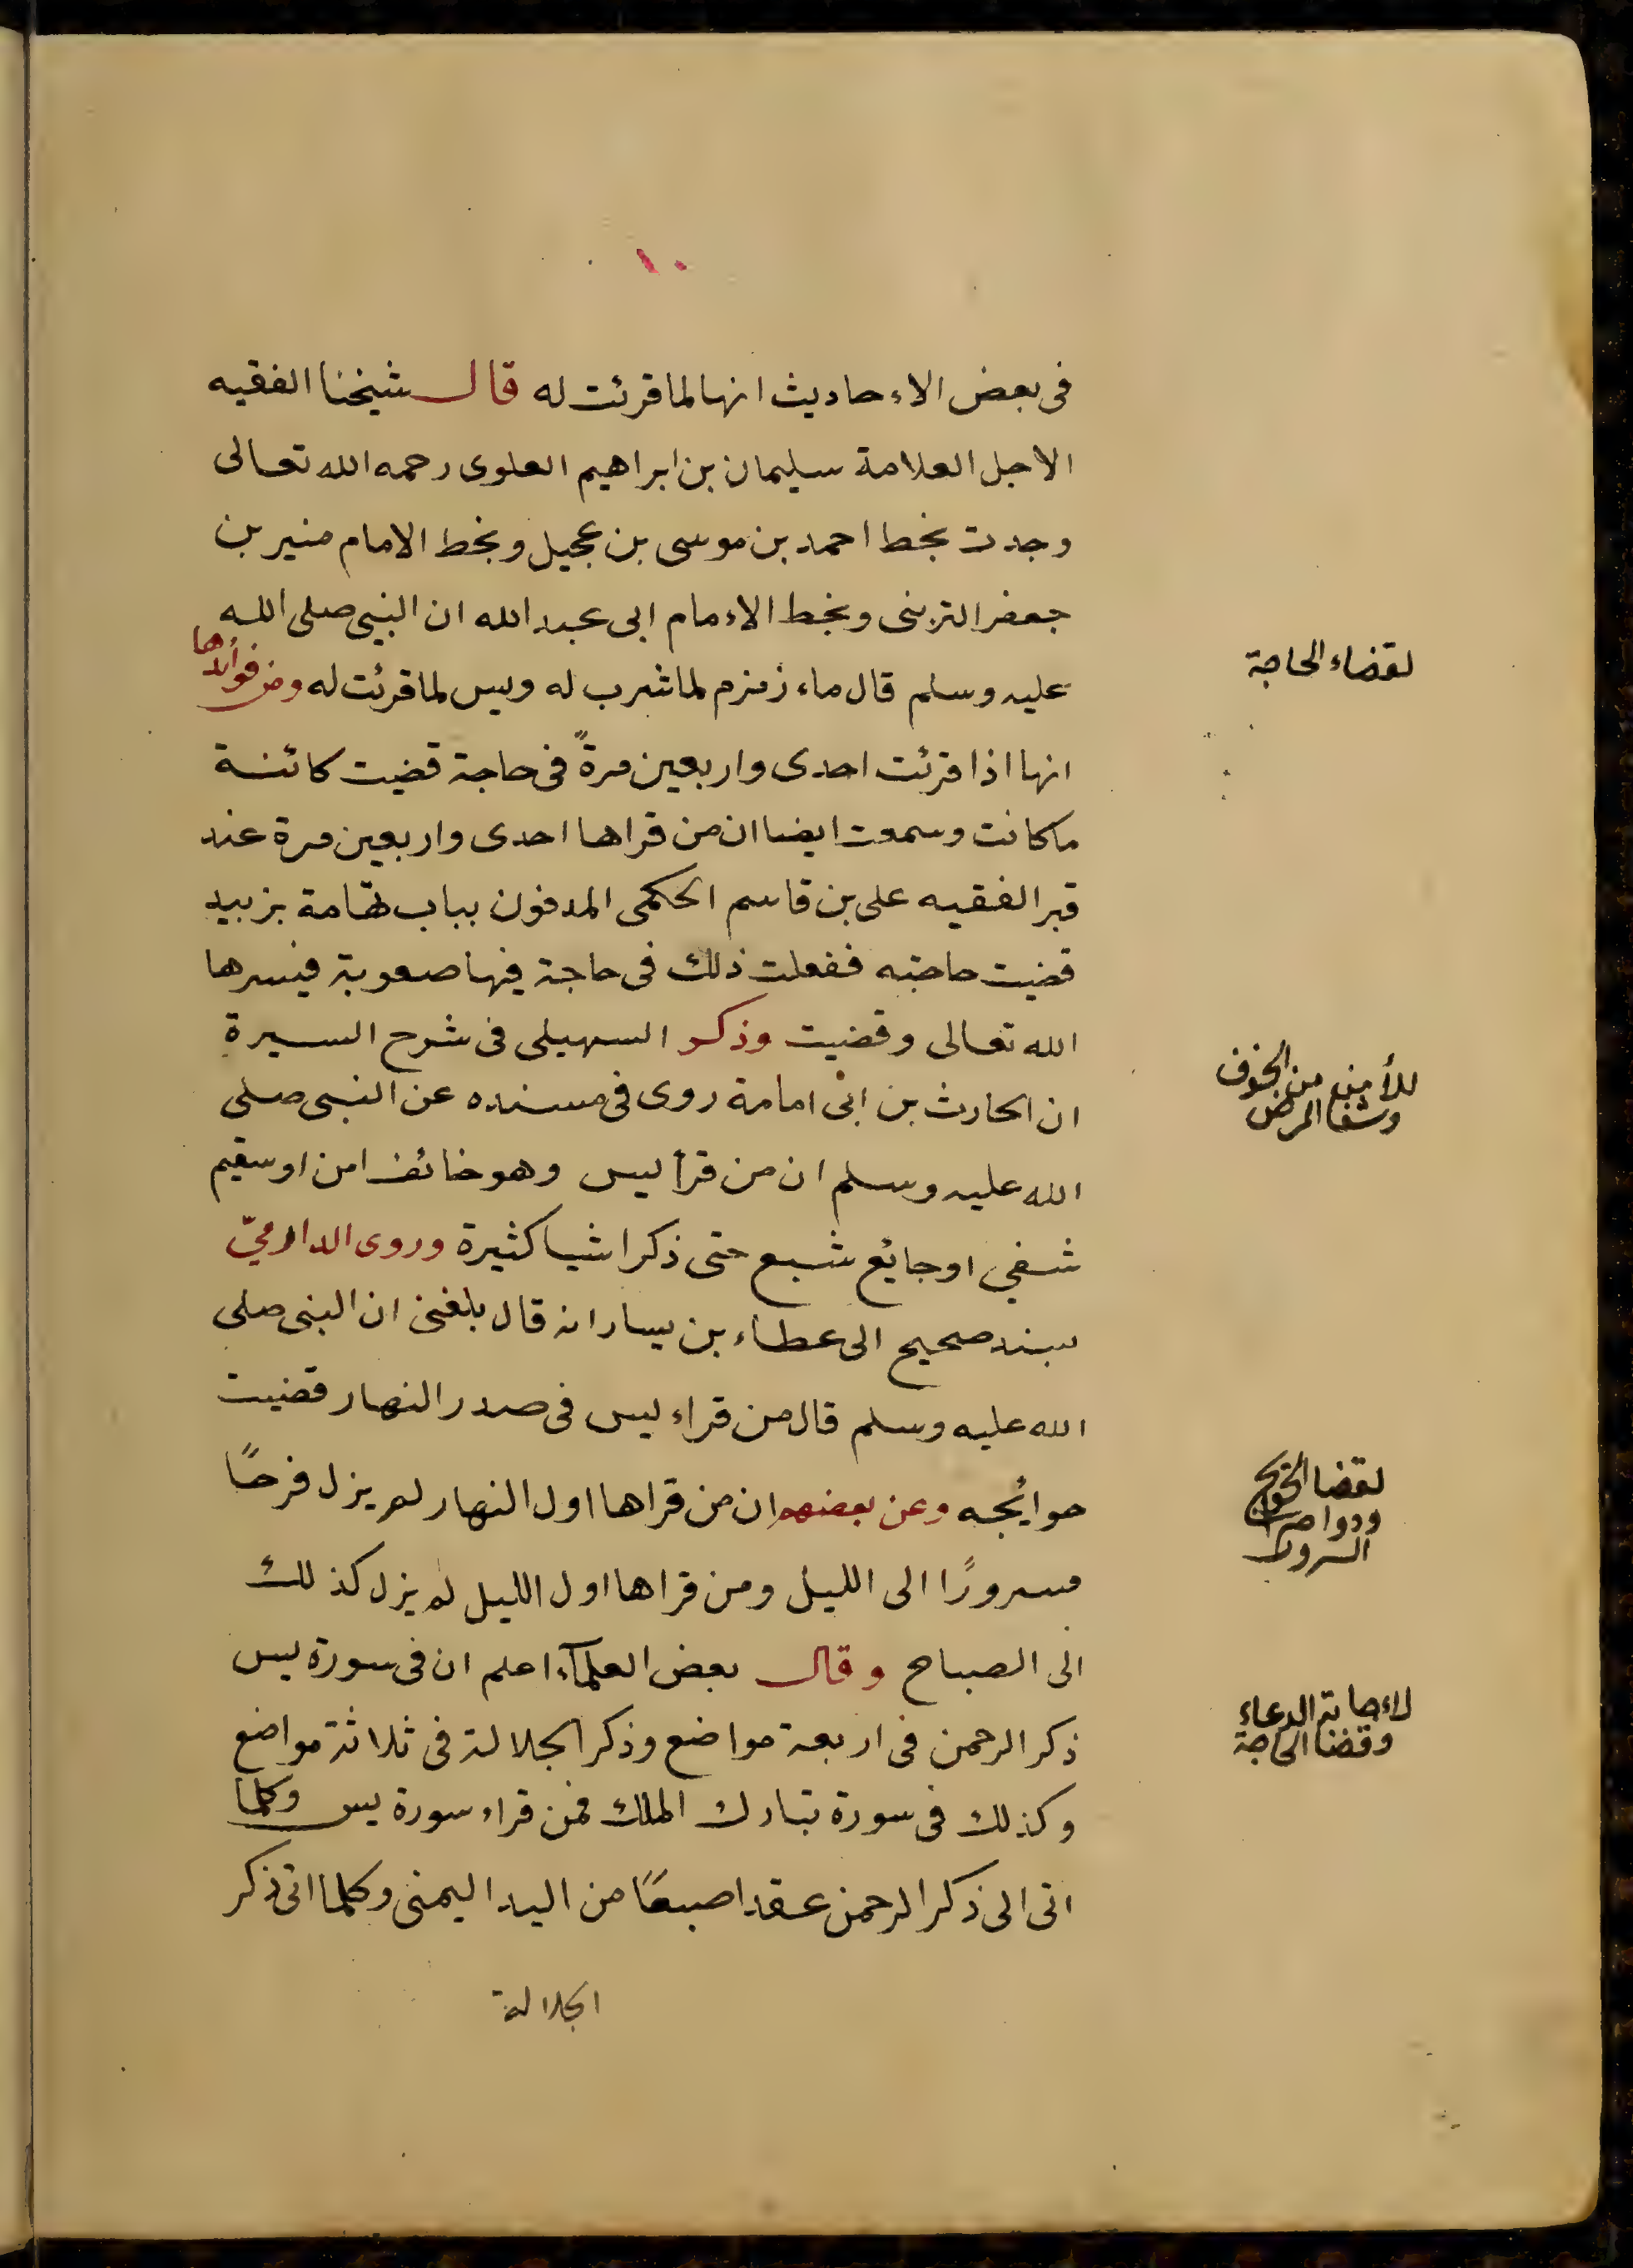 ١٠
فى بعض الاءحاديث انها لما قرئت له قال شيخنا الفقيه
الاجل العلامة سليمان بن ابراهيم العلوى رحمه الله تعالى
وجدت بخط احمد بن موسى بن عجيل وبخط الامام منير بن
جعفر الترينى وبخط الاءمام ابى عبد الله ان النبى صلى الله
عليه وسلم قال ماء زمزم لما شرب له ويس لما قرئت له ومن فوائدها
لقضاء الحاجة
انها اذا قرئت احدى واربعين مرةً فى حاجة قضيت كائنة
ما كانت وسمعت ايضا ان من قراها احدى واربعين مرة عند
قبر الفقيه على بن قاسم الحكمى المدفون بباب تهامة بزبيد
قضيت حاجته ففعلت ذلك فى حاجة فيها صعوبة فيسرها
الله تعالى وقضيت وذكر السهيلى فى شرح السيرة
للأمن من الخوف
وشفا المرض
ان الحارث بن ابى امامة روى فى مسنده عن النبى صلى
الله عليه وسلم ان من قرأ يس وهو خائف امن او سقيم
شفي او جايع شبع حتى ذكر اشيا كثيرة وروى الدارميّ
بسند صحيح الى عطاء بن يسار انه قال بلغنى ان النبى صلى
الله عليه وسلم قال من قراء يس فى صدر النهار قضيت
لقضا الحوايج
ودوام
السرور
حوائجه وعن بعضهم ان من قراها اول النهار لم يزل فرحًا
مسرورًا الى الليل ومن قراها اول الليل لم يزل كذلك
الى الصباح وقال بعض العلمآء اعلم ان فى سورة يس
لاءجابة الدعاء
وقضا الحاجة
ذكر الرحمن فى اربعة مواضع وذكر الجلالة فى ثلاثة مواضع
وكذلك فى سورة تبارك الملك فمن قراء سورة يس وكلما
اتى الى ذكر الرحمن عقد اصبعًا من اليد اليمنى وكلما اتى ذكر
الجلالة